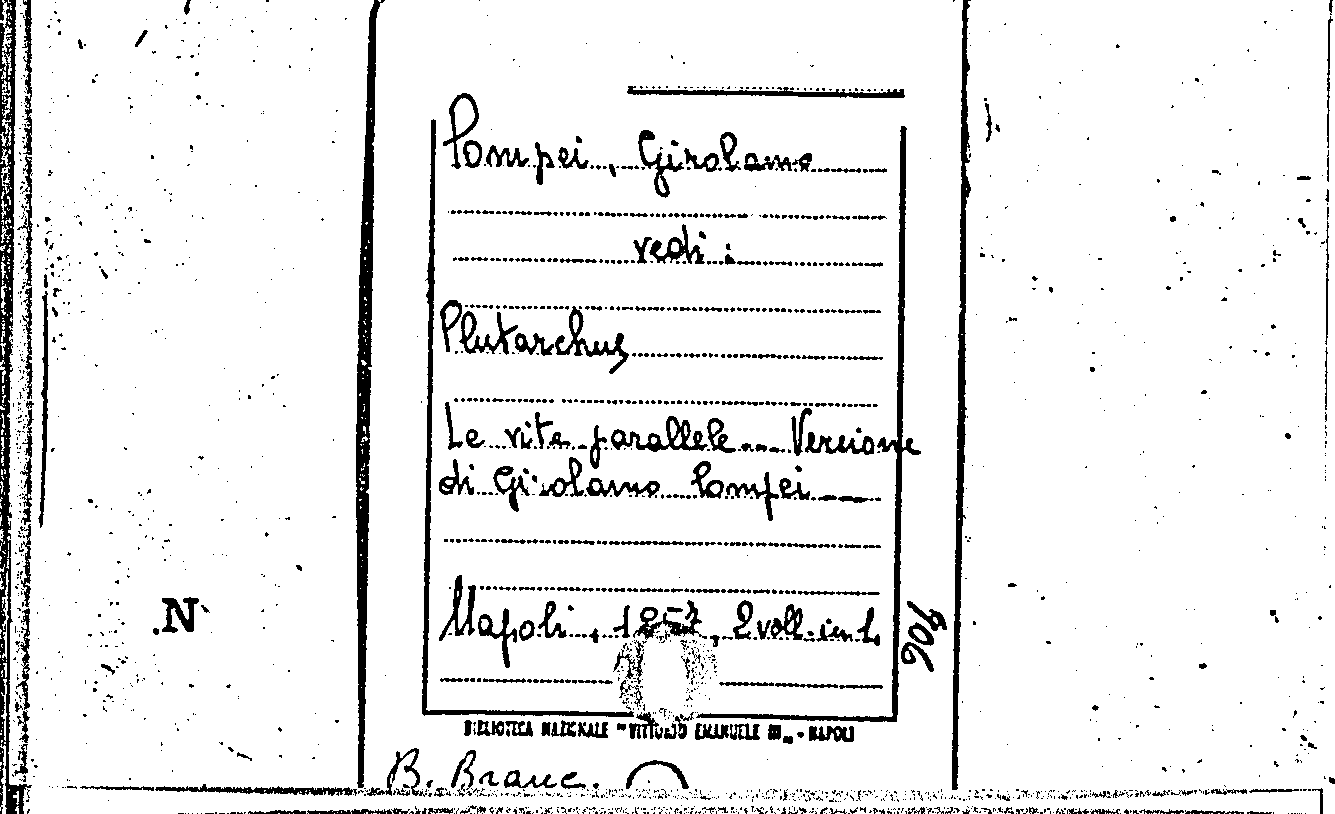 Pompei, Girolamo
vedi :
Plutarchus
Le vite parallele... Versione
di Girolamo Pompei....
Napoli, 1857, 2 voll. in 1.
906
.N
BIBLIOTECA NAZIONALE "VITTORIO EMANUELE III" - NAPOLI
B. Branc.